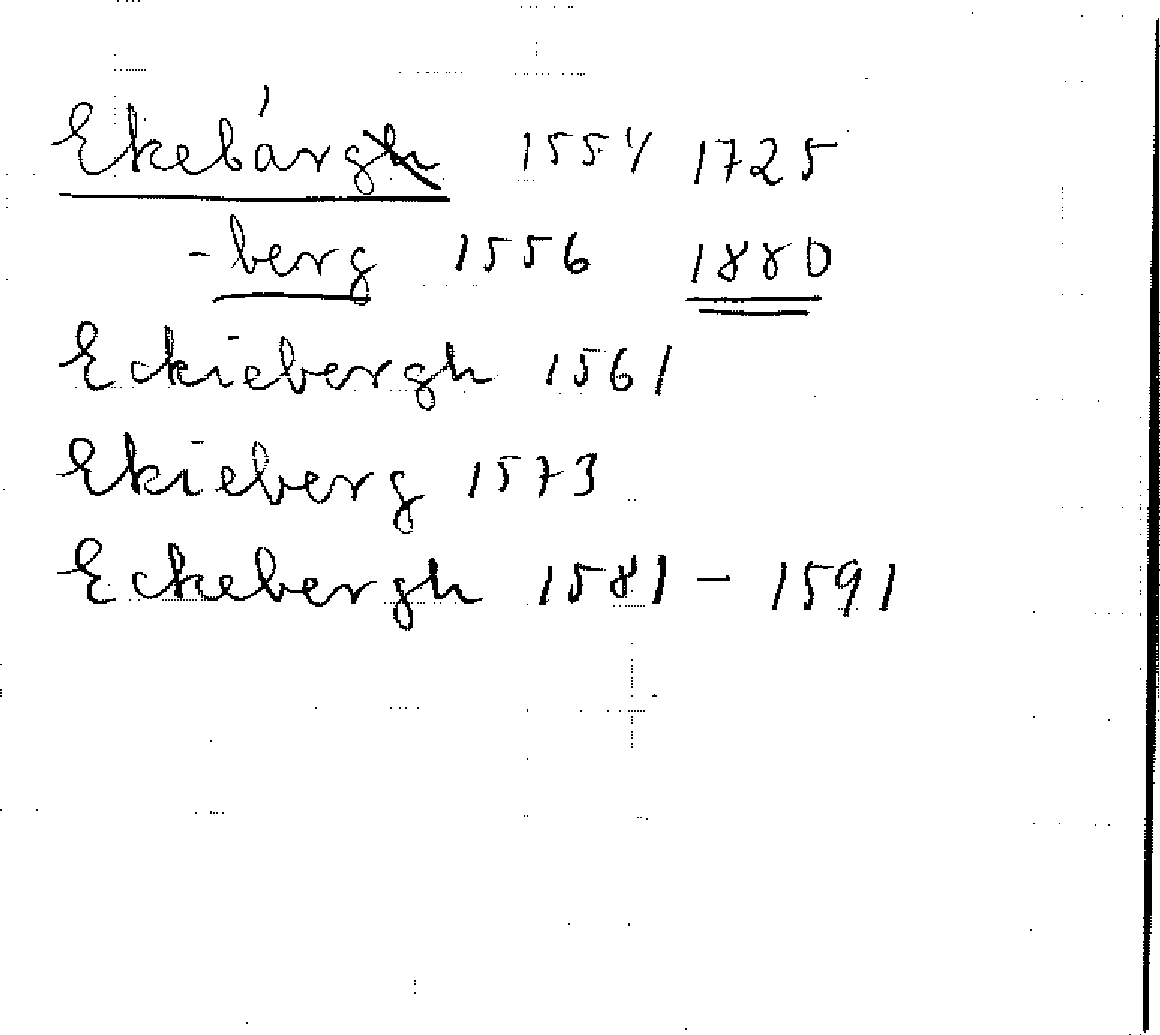 Ekebárgh 1554 1725
-berg 1556 1880
Eckiebergh 1561
Ekieberg 1573
Eckebergh 1581 – 1591